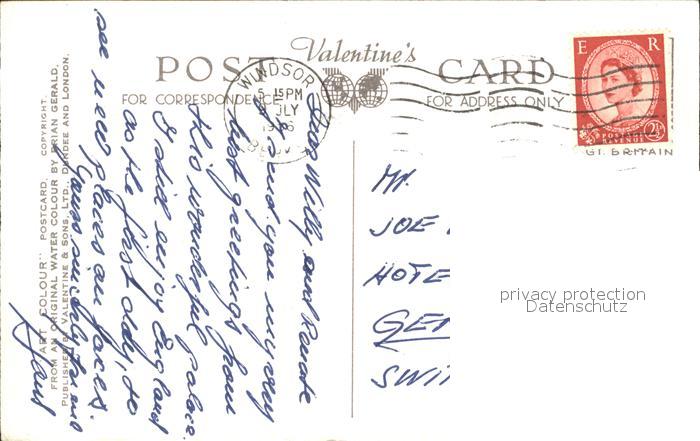 POST Valentine's CARD
FOR CORRESPONDENCE
FOR ADDRESS ONLY
WINDSOR
5-15PM
JLY
E R
POSTAGE
REVENUE
2½
GT. BRITAIN
"ART COLOUR" POSTCARD. COPYRIGHT.
FROM AN ORIGINAL WATER COLOUR BY BRIAN GERALD.
PUBLISHED BY VALENTINE & SONS, LTD., DUNDEE AND LONDON.
Dear Willy and Renate
I send you my very
best greetings from
this wonderful palace.
I still enjoy England
as the first day, to
see new places and faces.
Yours sincerely
Mr.
JOE
HOTE
GEN
SWIT
privacy protection
Datenschutz